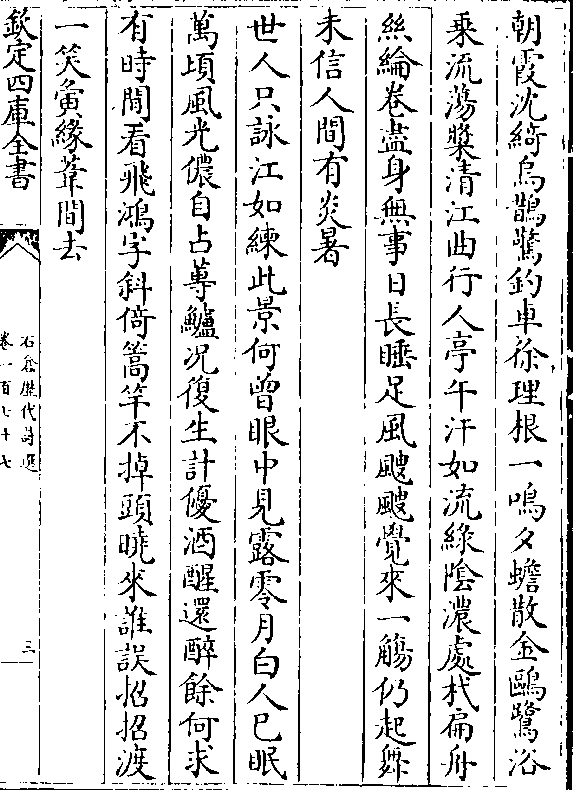 朝霞沈綺烏鵲驚釣車徐理根一鳴夕蟾散金鷗鷺浴
乗流蕩槳清江曲行人亭午汗如流緑陰濃處杙扁舟
絲綸卷盡身無事日長睡足風颼颼覺來一觴仍起舞
未信人間有炎暑
世人只詠江如練此景何曾眼中見露零月白人已眠
萬頃風光儂自占蓴鱸况復生計優酒醒還醉餘何求
有時閒看飛鴻字斜倚篙竿不掉頭曉來誰誤招招渡
一笑夤緣葦間去
欽定四庫全書
石倉歴代詩選
卷一百七十七
三